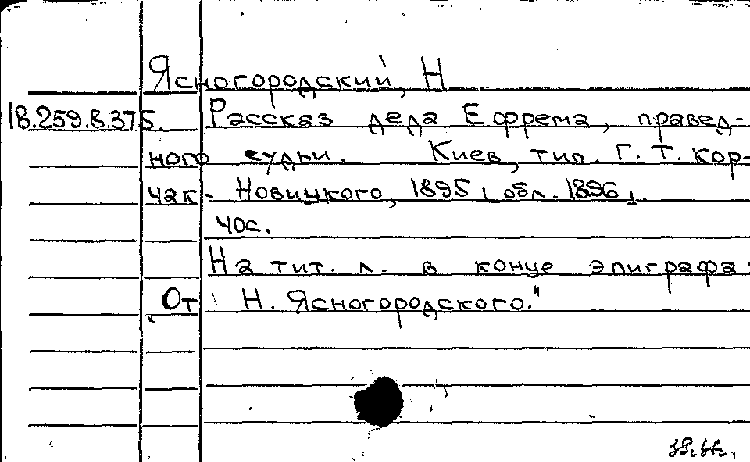 Ясногородский, Н
18.259.8.375. Рассказ деда Ефрема, правед-
ного судьи. Киев, тип. Г. Т. Кор-
чак-Новицкого, 1895 [обл. 1896].
40с.
На тит. л. в конце эпиграфа:
"От Н. Ясногородского."